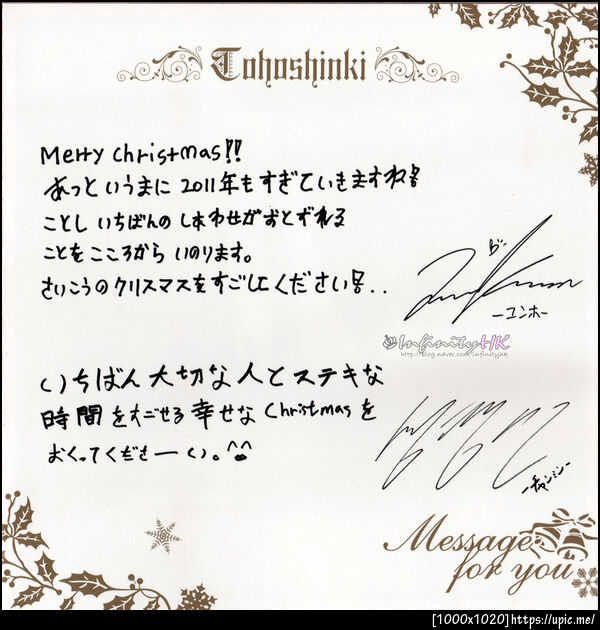 Tohoshinki
Merry Christmas!!
あっというまに 2011年もすぎていきますね!!
ことし いちばんの しあわせがおとずれる
ことをこころから いのります。
さいこうのクリスマスをすごしてください!!..
ーユンホー
InfinityHK
http://blog.naver.com/infinityhk
いちばん大切な人とステキな
時間をすごせる幸せなChristmasを
おくってくださーい。^^
ーチャンミンー
Message
for you
[1000x1020]https://upic.me/